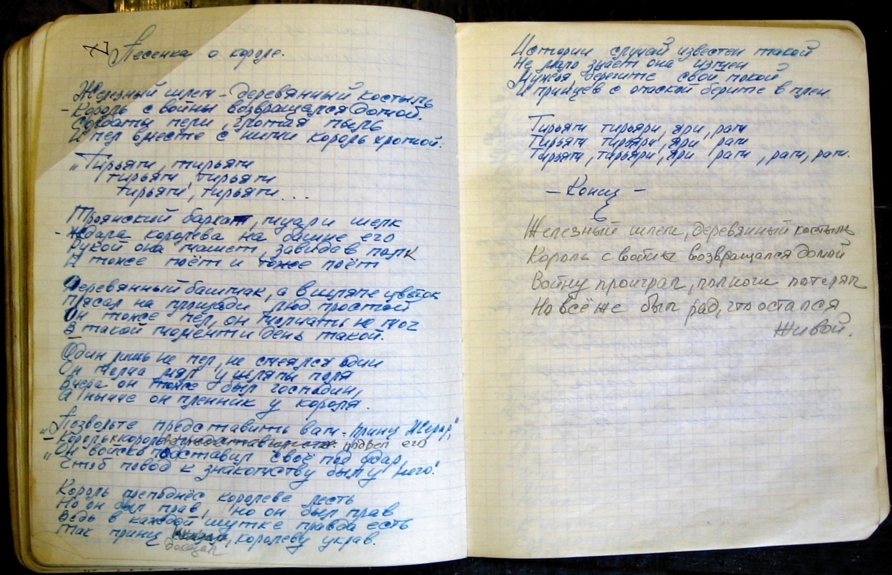 2
Песенка о короле.
Железный шлем - деревянный костыль
- Король с войны возвращался домой.
Солдаты пели, глотая пыль
И пел вместе с ними король хромой.
„Тирьям, тирьям
Тирьям тирьям
тирьям, тирьям...
бархат, шелк
- Ждала королева на башне его
Рукой она машет, завидев полк
И тоже поёт и тоже поёт
Деревянный башмак, а в шляпе цветок
Плясал на площади люд простой
Он тоже пел, он молчать не мог
В такой момент и день такой.
Один лишь не пел, не смеялся один
Он молча мял у шляпы поля
Вчера он тоже был господин,
А нынче он пленник у короля.
„Позвольте представить вам - принц Жерар,"
- Король подвел его
„Он войско поставил своё под удар,
Стоб повод к знакомству был у него!
Король преподнёс королеве лесть
Но он был прав, но он был прав
Ведь в каждой шутке правда есть
Так принц, королеву украв.
доказал
Истории случай известен такой
Не мало знает она измен
Мужья берегите свой покой
И принцев с опаской берите в плен.
Тирьям тирьяри, яри, рам
Тирьям тирьяри, яри, рам
Тирьям, тирьяри, яри рам, рам, рам.
- Конец -
Железный шлем, деревянный костыль
Король с войны возвращался домой
Войну проиграл, полноги потерял
Но всё же был рад, что остался
живой.